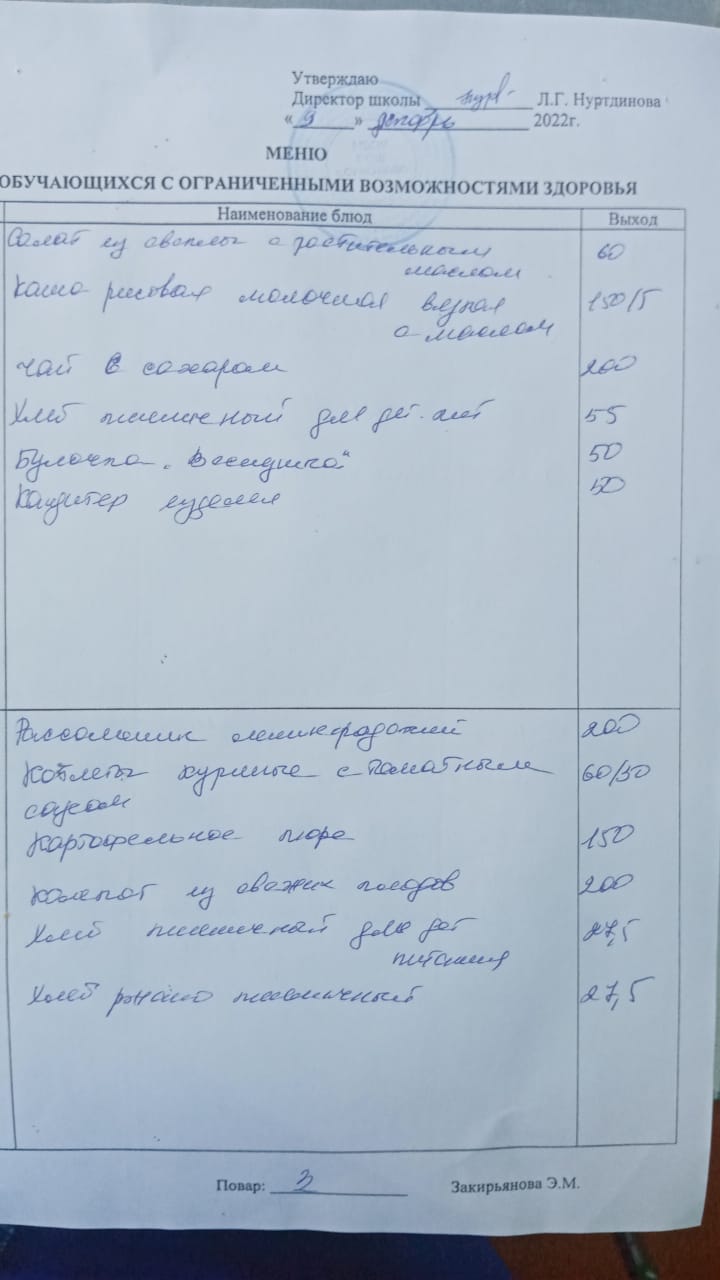 Утверждаю
Директор школы Л.Г. Нуртдинова
« 9 » декабрь 2022г.
МЕНЮ
ОБУЧАЮЩИХСЯ С ОГРАНИЧЕННЫМИ ВОЗМОЖНОСТЯМИ ЗДОРОВЬЯ
Наименование блюд Выход
Салат из свеклы с растительным 60
маслом
Каша рисовая молочная вязкая 150/5
с маслом
Чай с сахаром 200
Хлеб пшеничный для дет. пит 55
Булочка „Веснушка" 50
Кондитер изделия 50
Рассольник ленинградский 200
Котлеты куриные с томатным 60/30
соусом
Картофельное пюре 150
Компот из свежих плодов 200
Хлеб пшеничный для дет 27,5
питания
Хлеб ржано пшеничный 27,5
Повар: Закирьянова Э.М.